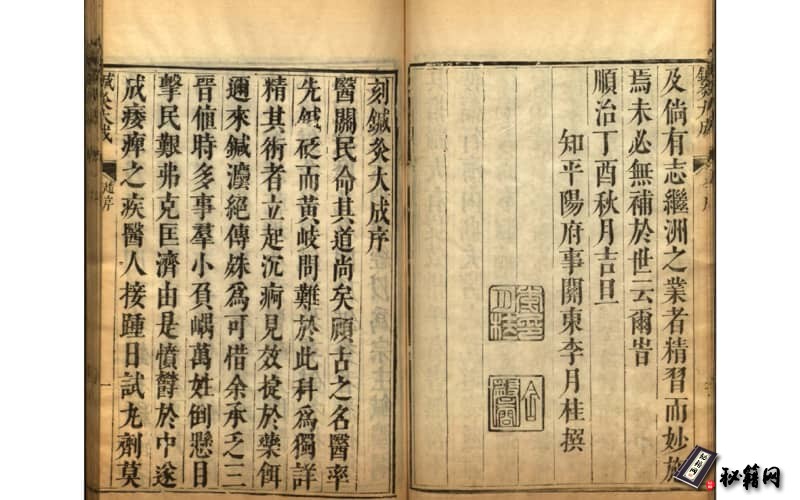 鍼灸大成
及倘有志繼洲之業者精習而妙施
焉未必無補於世云爾旹
順治丁酉秋月吉旦
知平陽府事關東李月桂撰
刻鍼灸大成序
醫關民命其道尚矣顧古之名醫率
先鍼砭而黃岐問難於此科爲獨詳
精其術者立起沉痾見效捷於藥餌
邇來鍼灋絕傳殊爲可惜余承乏三
晉値時多事羣小負嵎萬姓倒懸目
擊民艱弗克匡濟由是憤欝於中遂
成痿痺之疾醫人接踵日試丸劑莫
鍼灸大成
序
秘籍网